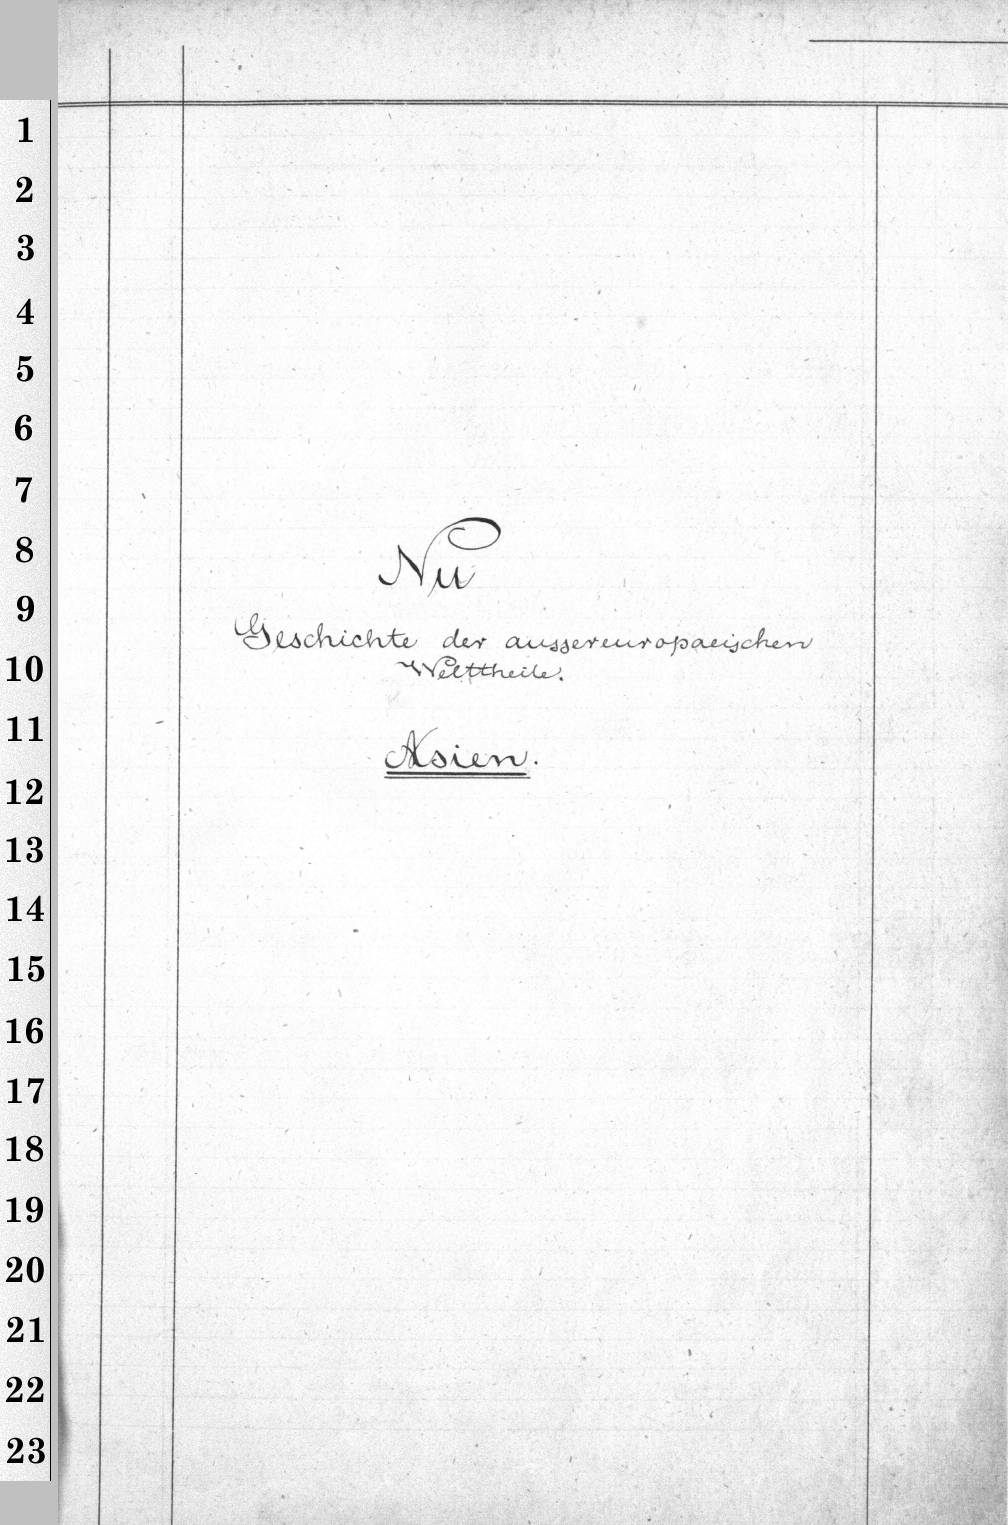 1
2
3
4
5
6
7
8
9
10
11
12
13
14
15
16
17
18
19
20
21
22
23
Nu
Geschichte der aussereuropaeischen
Welttheile.
Asien.